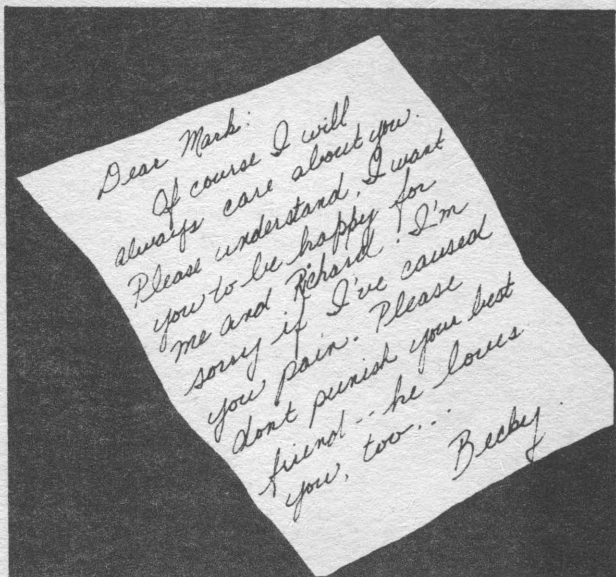 Dear Mark:
Of course I will
always care about you.
Please understand, I want
you to be happy for
me and Richard. I'm
sorry if I've caused
you pain. Please
don't punish your best
friend -- he loves
you, too...
Becky.